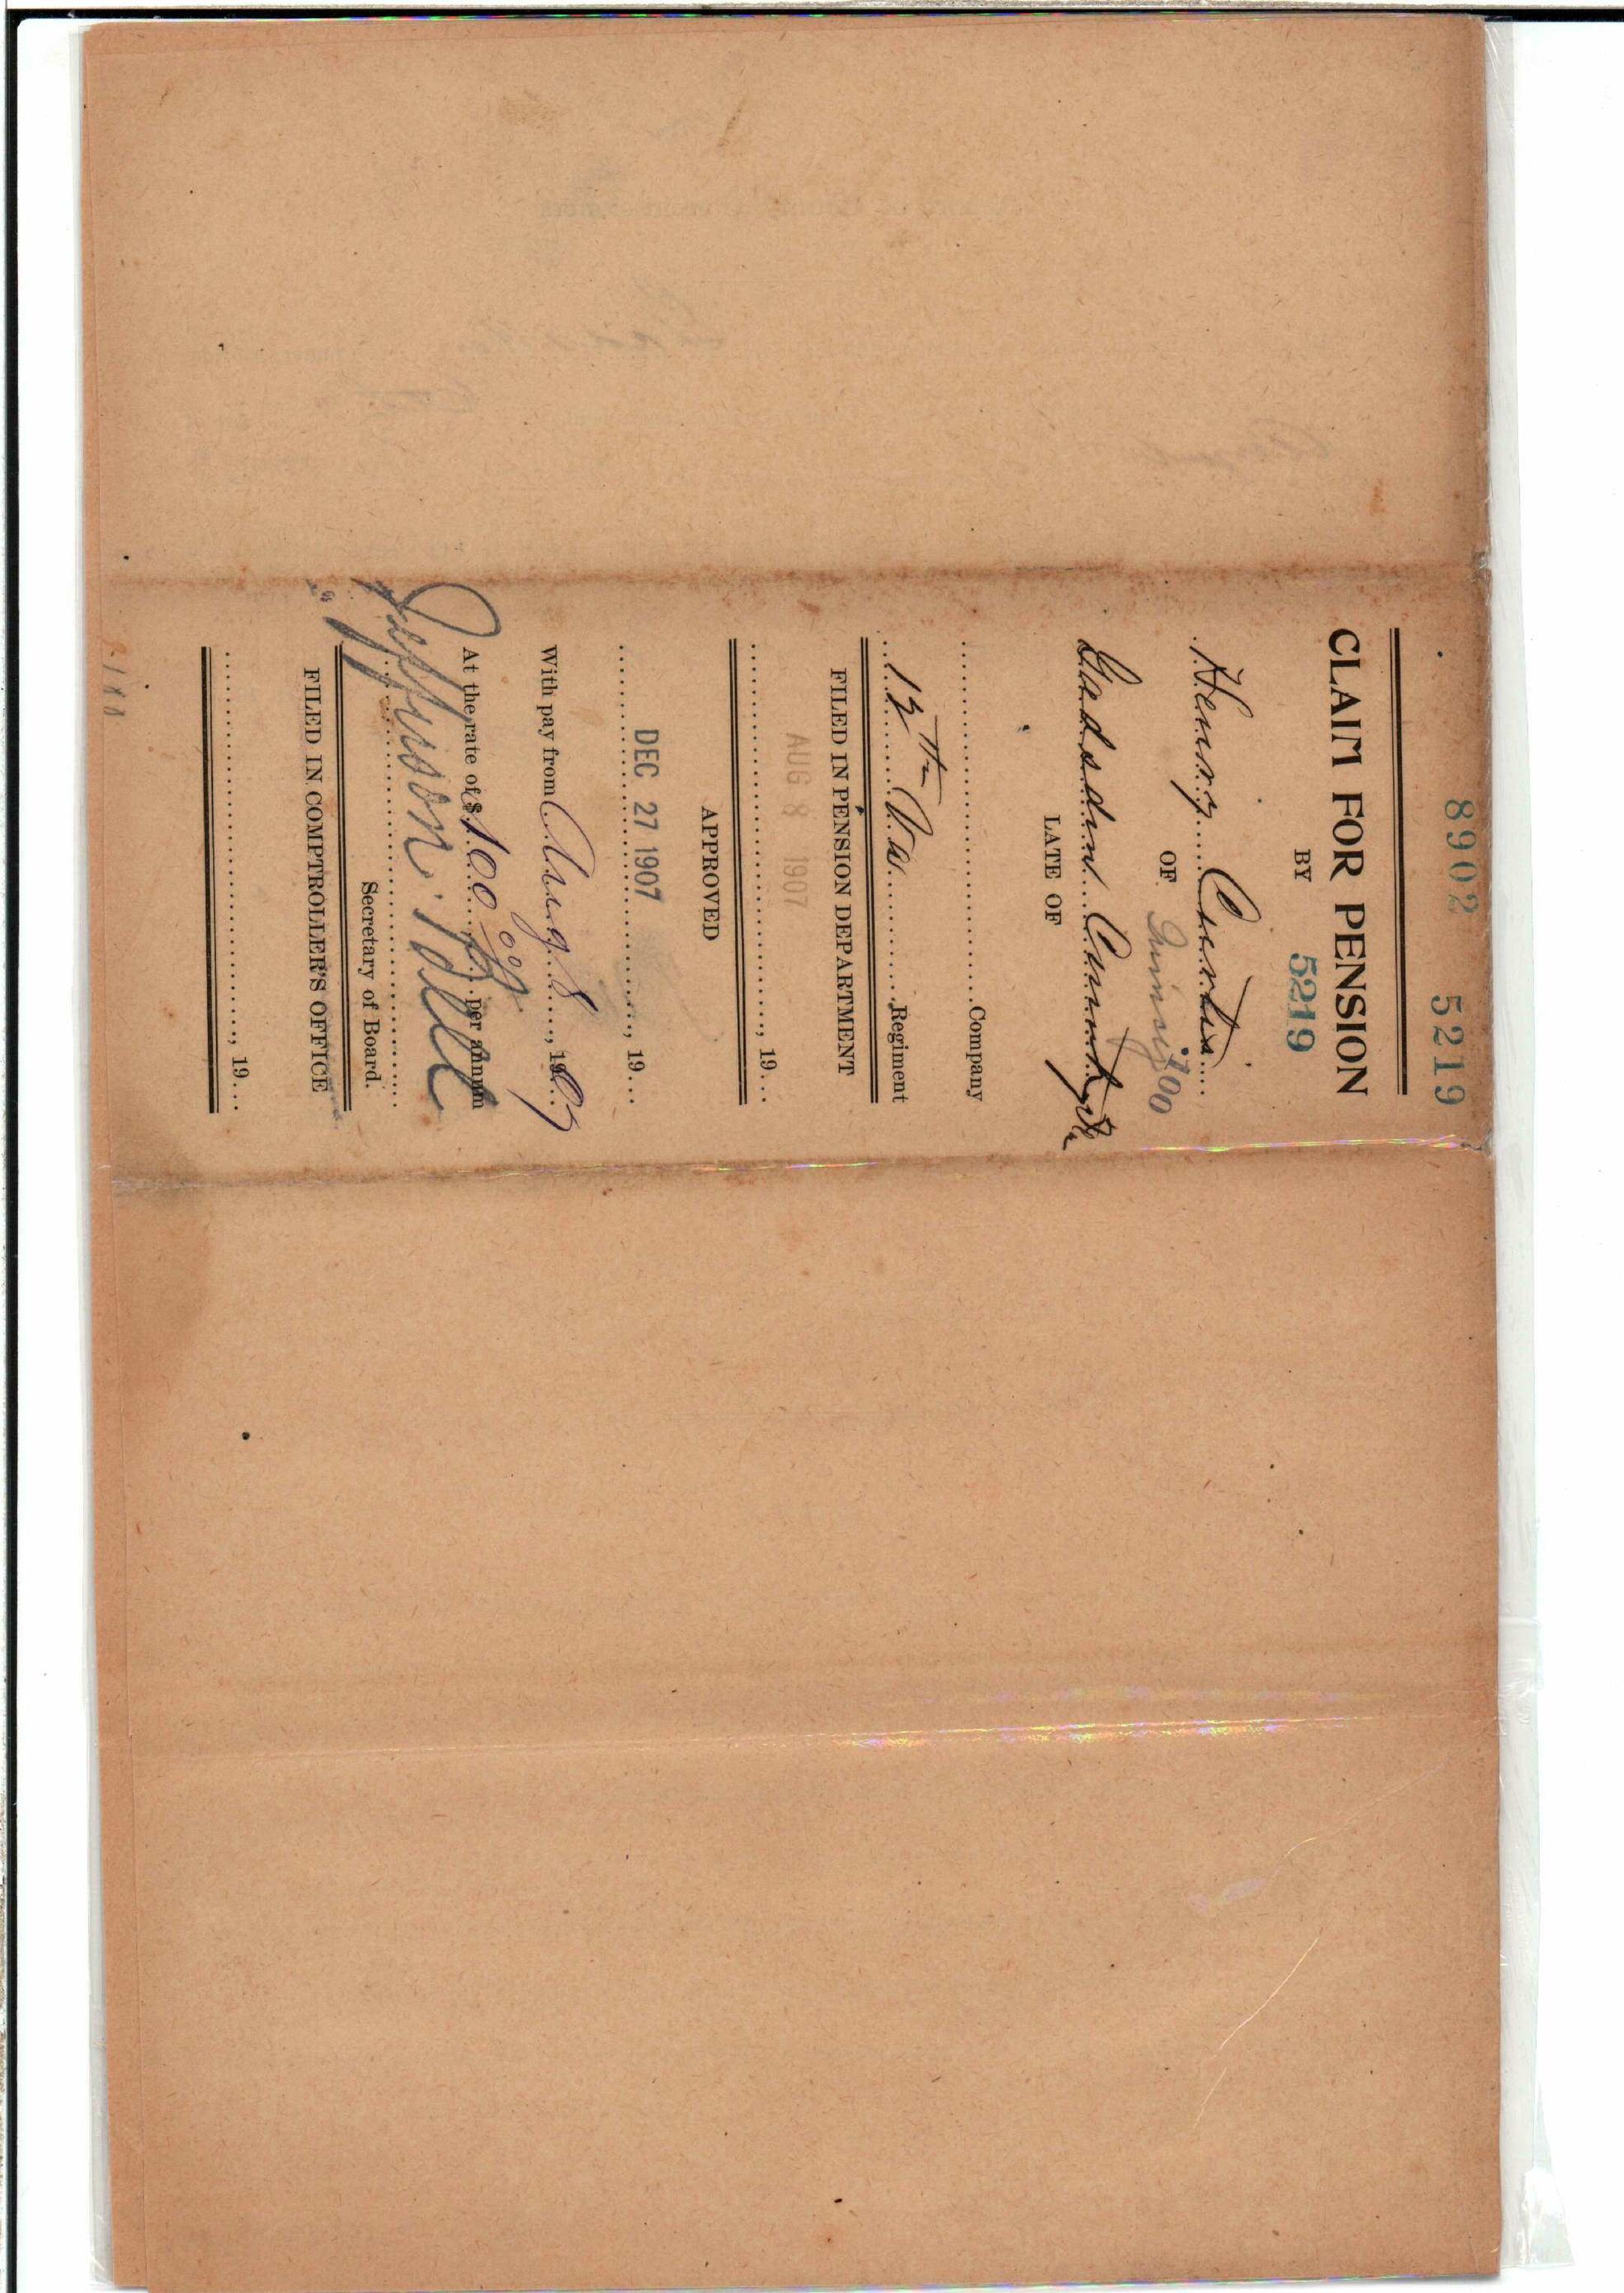 8902 5219
CLAIM FOR PENSION
BY 5219
Henry Curtis
OF Quincy 700
Gadsden County Fla
LATE OF
Company
12th Va Regiment
FILED IN PENSION DEPARTMENT
AUG 8 1907
, 19
APPROVED
DEC 27 1907 , 19
With pay from Aug 8, 1907
At the rate of $ 100 00 per annum
Secretary of Board.
FILED IN COMPTROLLER'S OFFICE
, 19